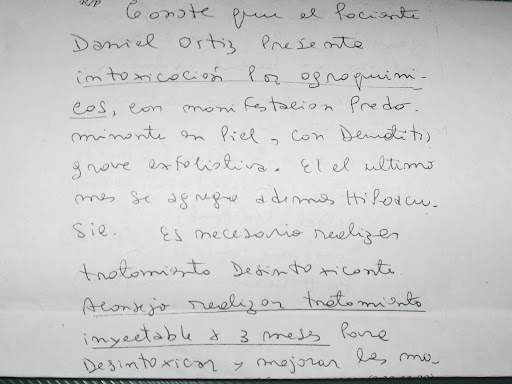 R/p Conste que el Paciente
Daniel Ortiz Presenta
intoxicación Por agroquími-
cos, con manifestacion Predo-
minante en Piel, con Dermatitis
grave exfoliativa. El el ultimo
mes se agrego además Hipoacu-
sie. Es necesario realizar
tratamiento Desintoxicante.
Aconsejo realizar tratamiento
inyectable x 3 meses Para
Desintoxicar y mejorar las ma-